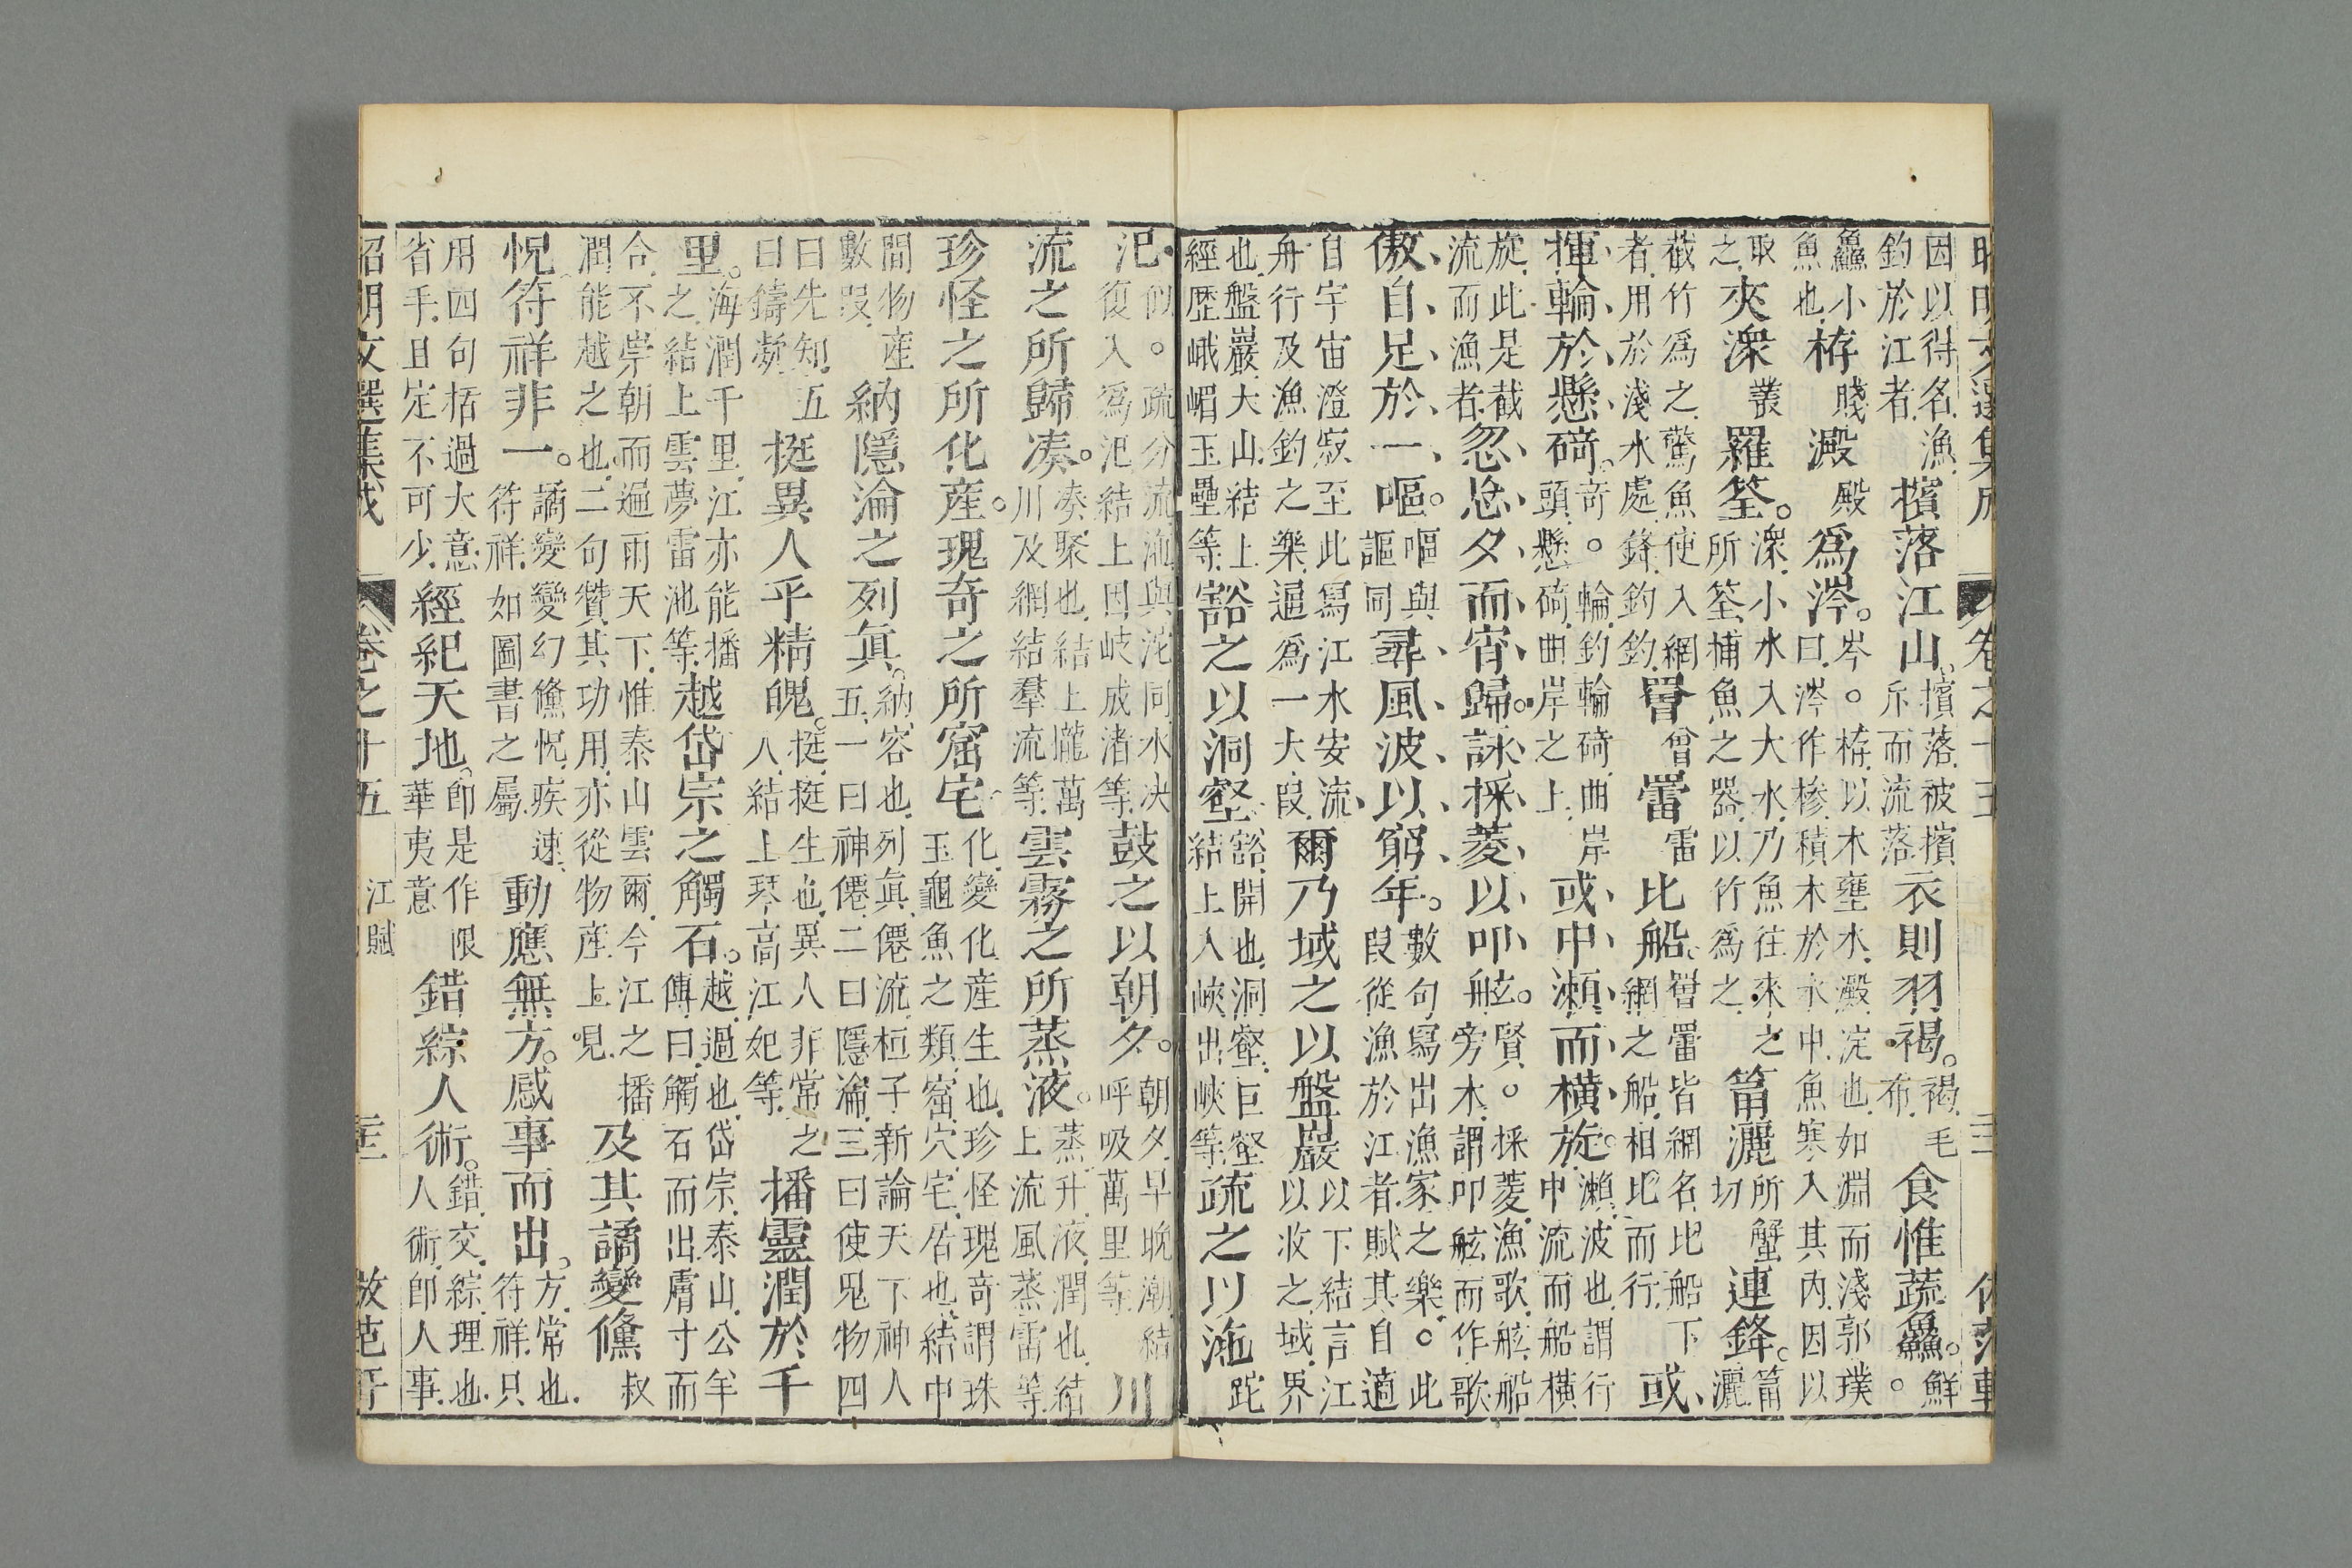 昭明文選集成 卷之十五
因以得名漁釣於江者擯落江山擯落被擯斥而流落衣則羽褐褐毛布食惟蔬鱻鮮
鱻小魚也栫賤澱殿爲涔岑栫以木壅水澱淀也如淵而淺郭璞曰涔作槮積木於水中魚寒入其內因以
取之夾潨叢羅筌潨小水入大水乃魚往來之所筌捕魚之器以竹爲之筩灑所蟹切連鋒筩灑
截竹爲之驚魚使入網者用於淺水處鋒釣鈎罾曾䍣雷比船罾䍣皆網名比船下網之船相比而行或
揮輪於懸碕奇輪釣輪碕曲岸頭懸碕曲岸之上或中瀨而橫旋瀨波也謂行中流而船橫
旋此是截流而漁者忽忘夕而宵歸詠採菱以叩舷賢採菱漁歌舷船旁木謂叩舷而作歌
傲自足於一嘔嘔與謳同尋風波以窮年數句寫出漁家之樂此段從漁於江者賦其自適
自宇宙澄寂至此寫江水安流舟行及漁釣之樂逼爲一大段爾乃域之以盤巖以下結言江以收之域界
也盤巖大山結上經歷峨嵋玉壘等豁之以洞壑豁開也洞壑巨壑結上入峽出峽等疏之以沲跎
汜似疏分流沲與沱同水決復入爲汜結上因岐成渚等鼓之以朝夕朝夕早晚潮結呼吸萬里等川
流之所歸湊湊聚也結上隴萬川及網結羣流等雲霧之所蒸液蒸升液潤也結上流風蒸雷等
珍怪之所化產瑰奇之所窟宅化變化產生也珍怪瑰奇謂珠玉龜魚之類窟穴宅居也結中
間物產數段納隱淪之列眞納容也列眞僊流桓子新論天下神人五一曰神僊二曰隱淪三曰使鬼物四
曰先知五曰鑄凝挺異人乎精魄挺挺生也異人非常之人結上琴高江妃等播靈潤於千
里海潤千里江亦能播之結上雲夢雷池等越岱宗之觸石越過也岱宗泰山公羊傳曰觸石而出膚寸而
合不崇朝而遍雨天下惟泰山雲爾今江之播潤能越之也二句贊其功用亦從物產上見及其譎變儵叔
怳符祥非一譎變變幻儵怳疾速符祥如圖書之屬動應無方感事而出方常也符祥只
用四句括過大意省手且定不可少經紀天地即是作限華夷意錯綜人術錯交綜理也人術即人事
昭明文選集成 卷之十五 江賦